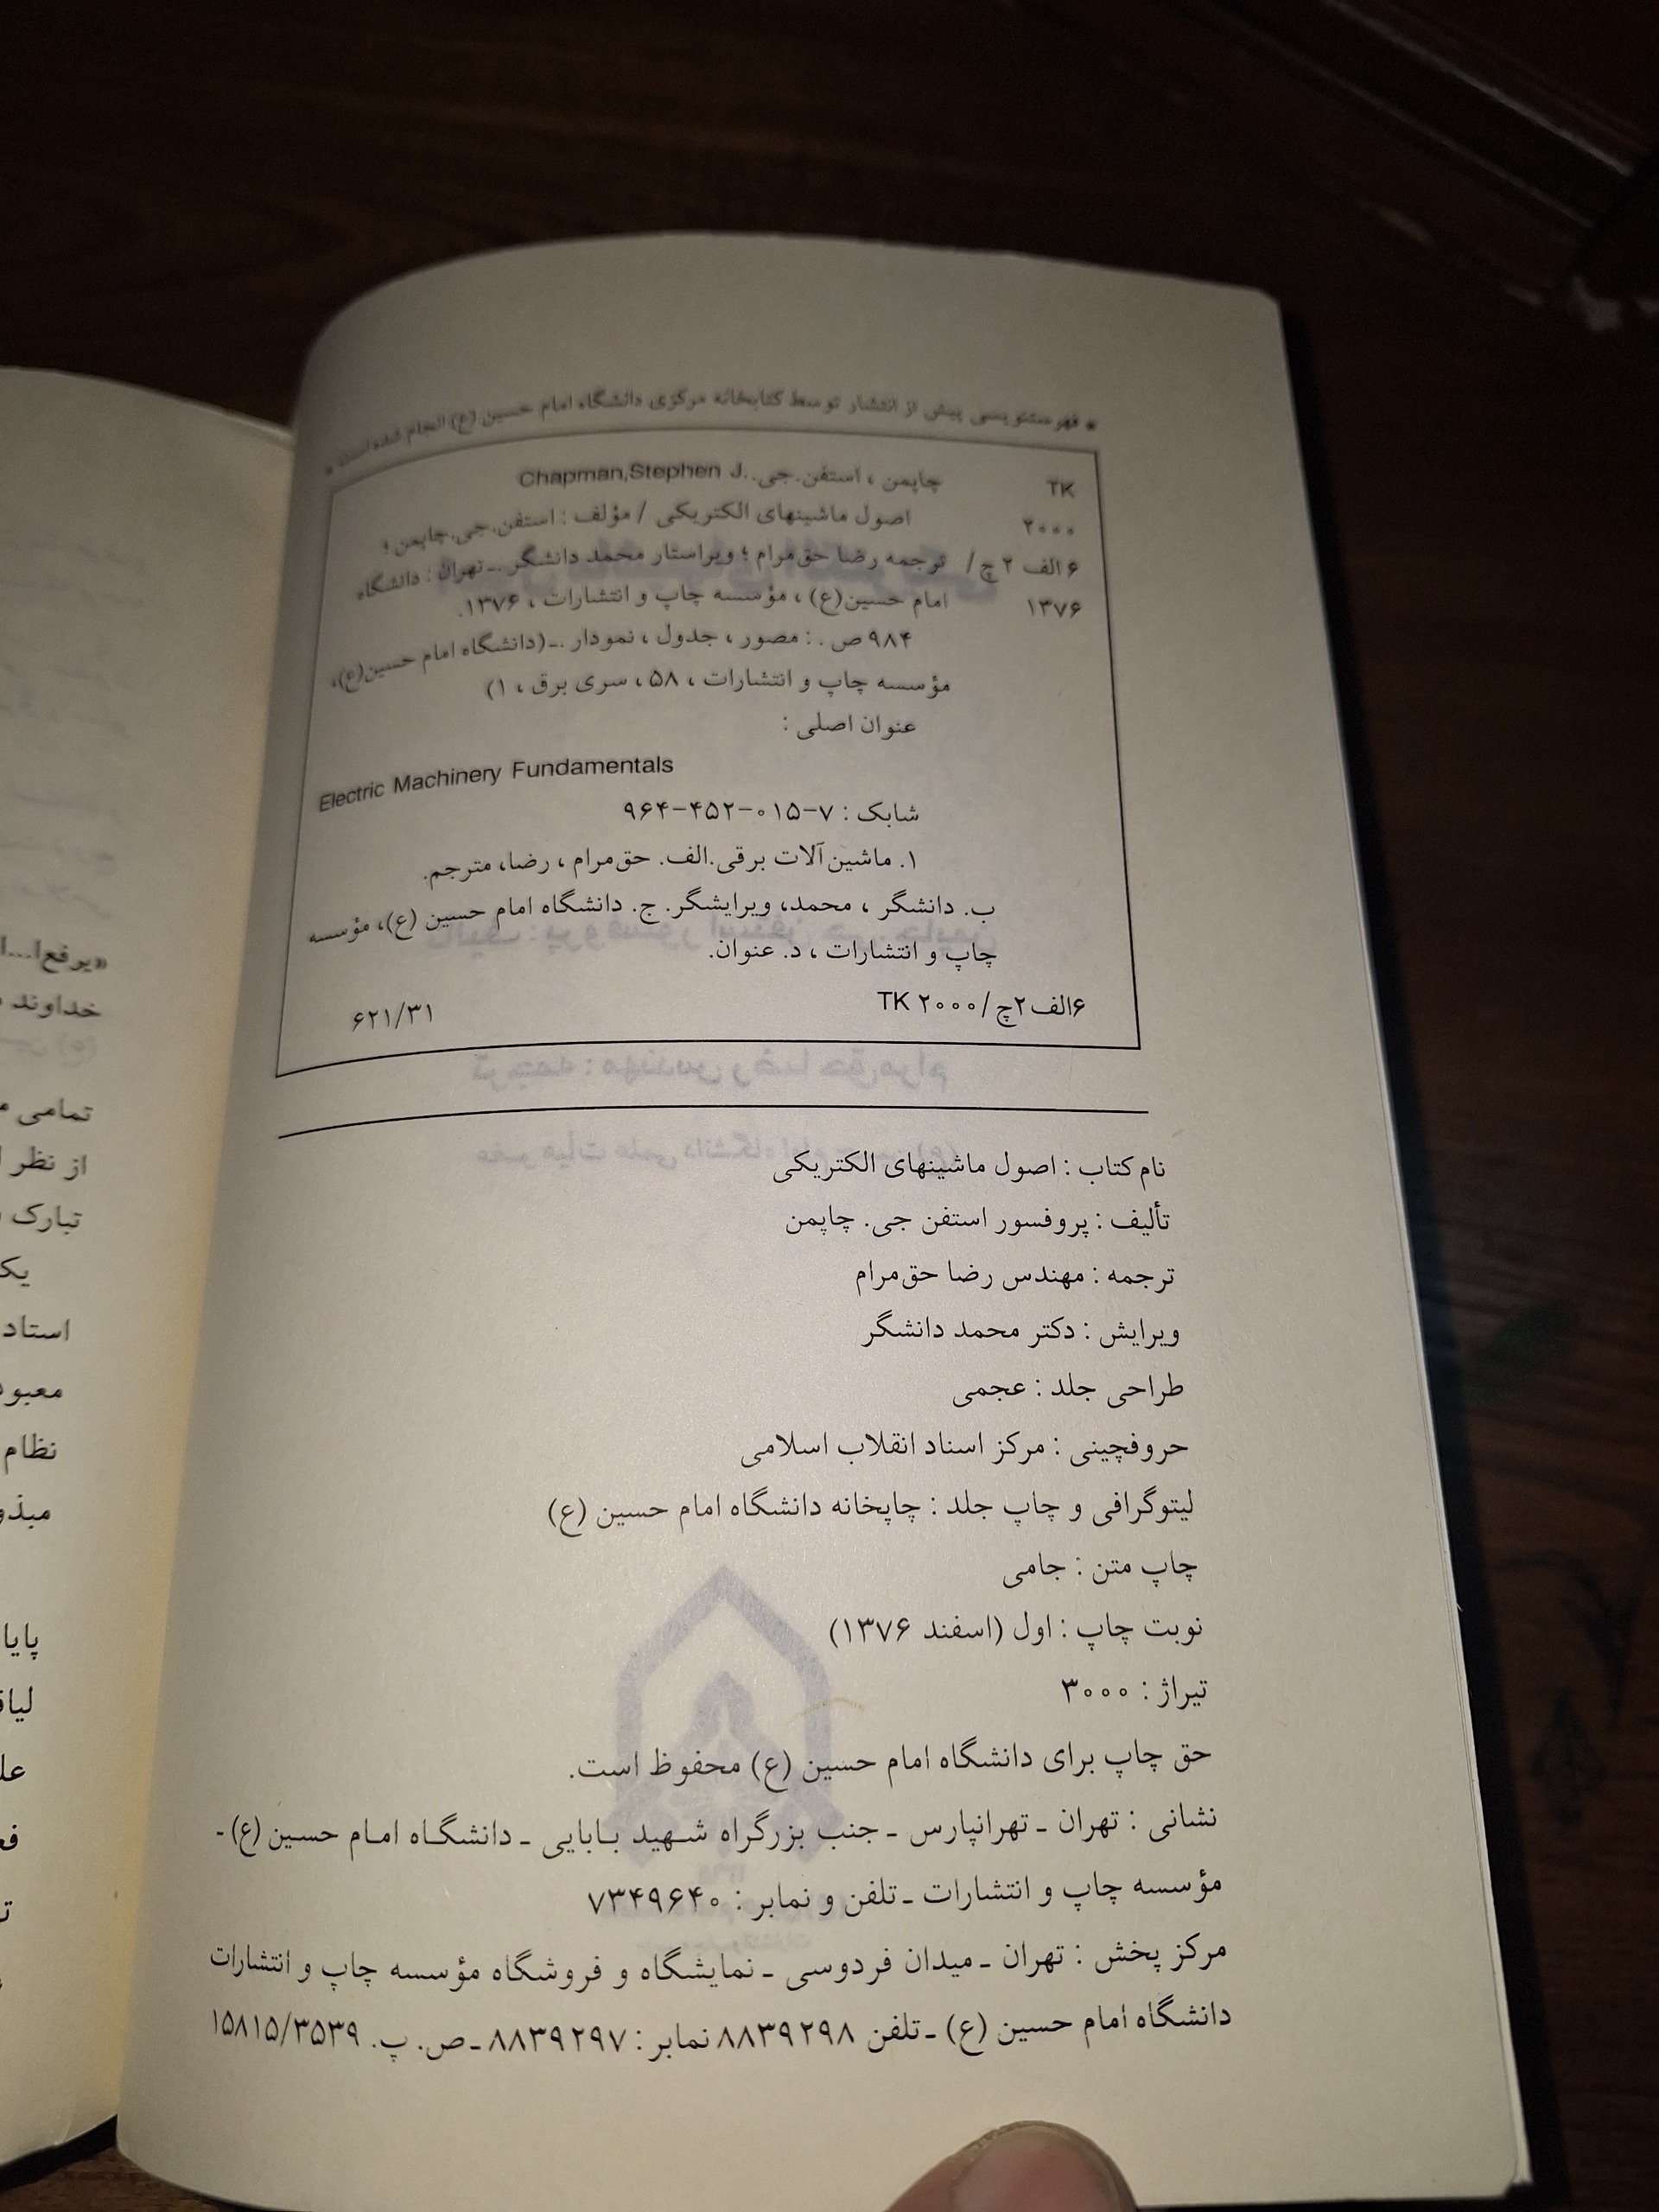 * فهرستنویسی پیش از انتشار توسط کتابخانه مرکزی دانشگاه امام حسین (ع) انجام شده است *
TK چاپمن ، استفن.جی. .Chapman,Stephen J
۲۰۰۰ اصول ماشینهای الکتریکی / مؤلف : استفن.جی.چاپمن ؛
۶ الف ۲ چ/ ترجمه رضا حق‌مرام ؛ ویراستار محمد دانشگر .ـ تهران : دانشگاه
۱۳۷۶ امام حسین(ع) ، مؤسسه چاپ و انتشارات ، ۱۳۷۶.
۹۸۴ ص . : مصور ، جدول ، نمودار .ـ (دانشگاه امام حسین(ع)،
مؤسسه چاپ و انتشارات ، ۵۸ ، سری برق ، ۱)
عنوان اصلی :
Electric Machinery Fundamentals
شابک : ۷-۰۱۵-۴۵۲-۹۶۴
۱. ماشین‌آلات برقی.الف. حق‌مرام ، رضا، مترجم.
ب. دانشگر ، محمد، ویرایشگر. ج. دانشگاه امام حسین (ع)، مؤسسه
چاپ و انتشارات ، د. عنوان.
۶الف۲چ/۲۰۰۰ TK ۶۲۱/۳۱
نام کتاب : اصول ماشینهای الکتریکی
تألیف : پروفسور استفن جی. چاپمن
ترجمه : مهندس رضا حق‌مرام
ویرایش : دکتر محمد دانشگر
طراحی جلد : عجمی
حروفچینی : مرکز اسناد انقلاب اسلامی
لیتوگرافی و چاپ جلد : چاپخانه دانشگاه امام حسین (ع)
چاپ متن : جامی
نوبت چاپ : اول (اسفند ۱۳۷۶)
تیراژ : ۳۰۰۰
حق چاپ برای دانشگاه امام حسین (ع) محفوظ است.
نشانی : تهران ـ تهرانپارس ـ جنب بزرگراه شهید بابایی ـ دانشگاه امام حسین (ع) -
مؤسسه چاپ و انتشارات ـ تلفن و نمابر : ۷۳۴۹۶۴۰
مرکز پخش : تهران ـ میدان فردوسی ـ نمایشگاه و فروشگاه مؤسسه چاپ و انتشارات
دانشگاه امام حسین (ع) ـ تلفن ۸۸۳۹۲۹۸ نمابر : ۸۸۳۹۲۹۷ ـ ص. پ. ۱۵۸۱۵/۳۵۳۹
«یرفع ا...
خداوند
تمامی
از نظر
تبارک
یک
استاد
معبود
نظام
مبذو
پایا
لیا